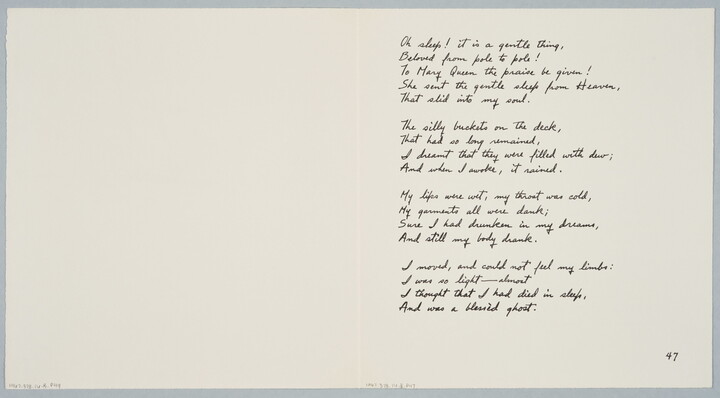 Oh sleep! it is a gentle thing,
Beloved from pole to pole!
To Mary Queen the praise be given!
She sent the gentle sleep from Heaven,
That slid into my soul.
The silly buckets on the deck,
That had so long remained,
I dreamt that they were filled with dew;
And when I awoke, it rained.
My lips were wet, my throat was cold,
My garments all were dank;
Sure I had drunken in my dreams,
And still my body drank.
I moved, and could not feel my limbs:
I was so light—almost
I thought that I had died in sleep,
And was a blessèd ghost.
47